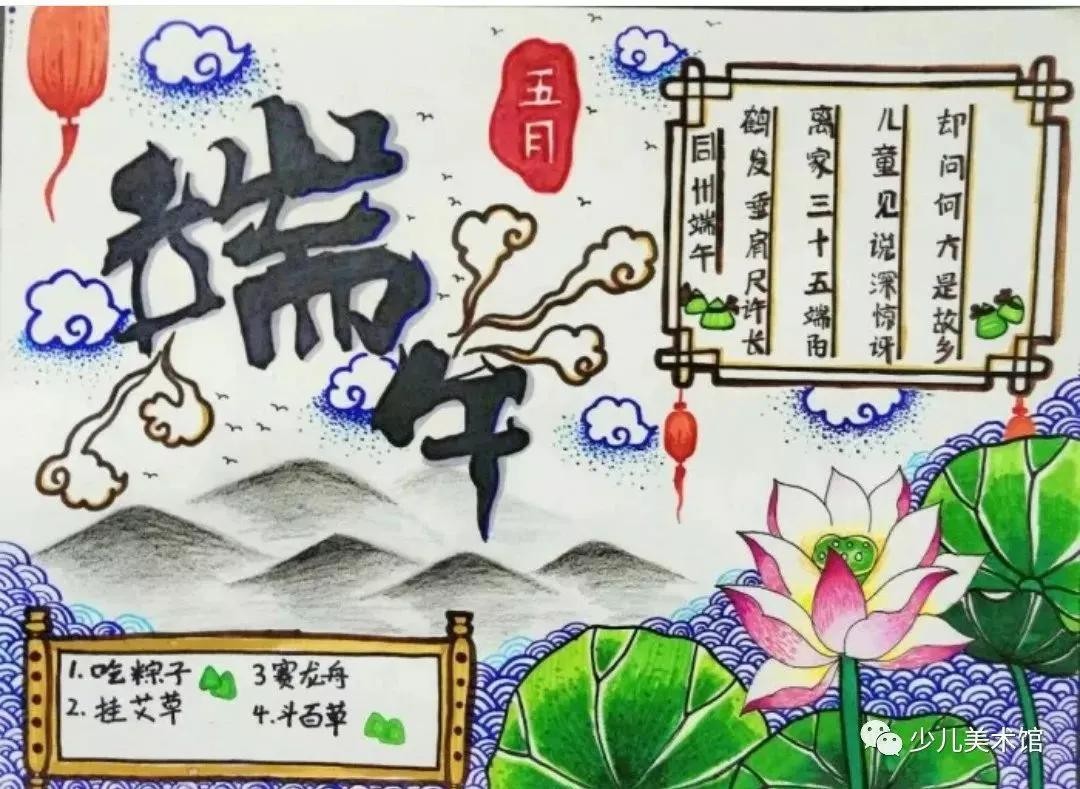 端午
五月
同州端午
鹤发垂肩尺许长
离家三十五端阳
儿童见说深惊讶
却问何方是故乡
1.吃粽子
2.挂艾草
3赛龙舟
4.斗百草
少儿美术馆